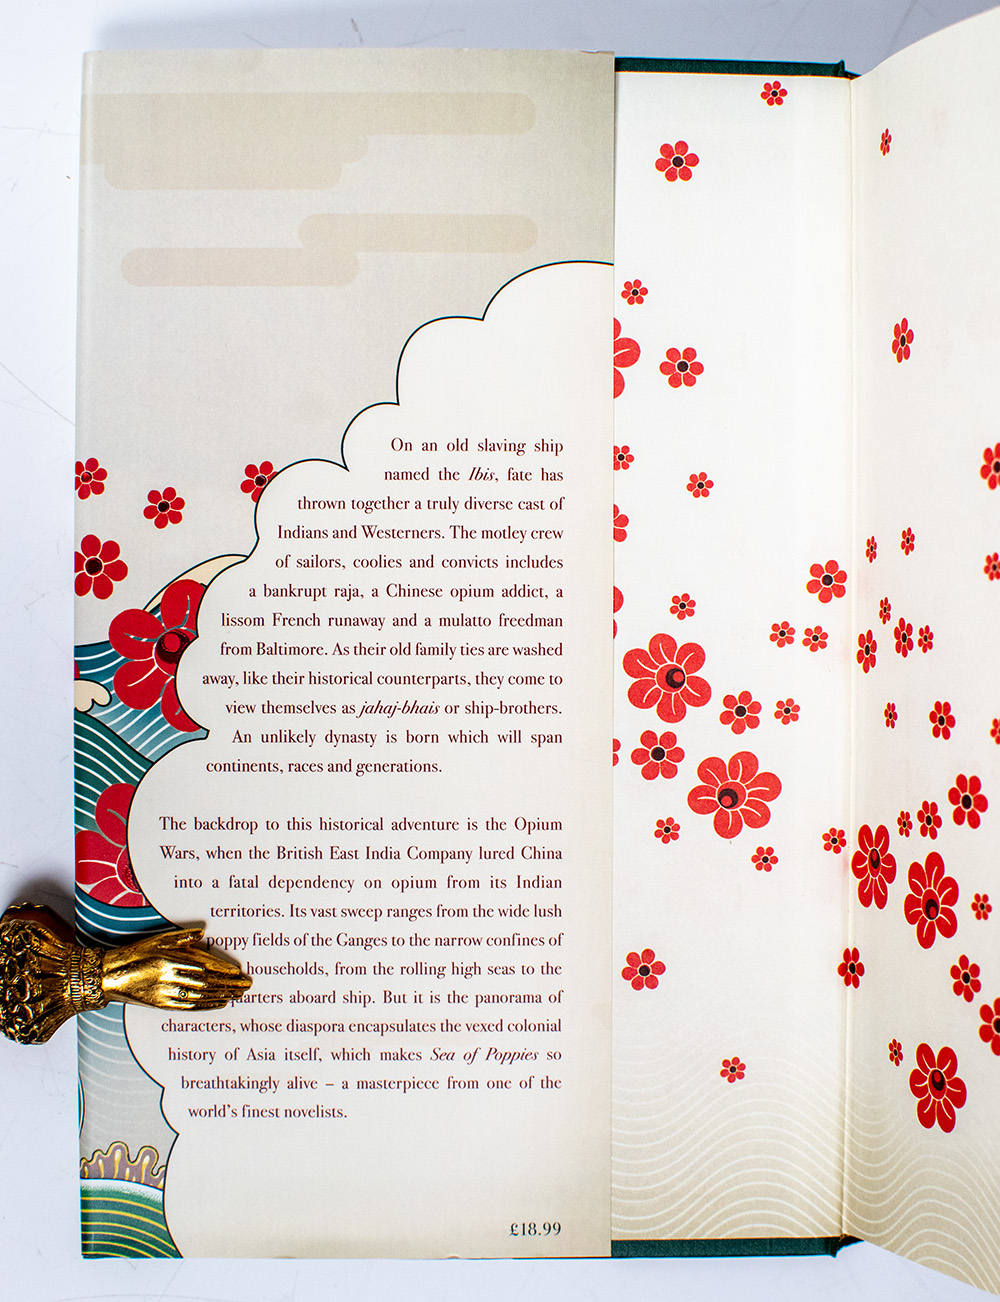 On an old slaving ship
named the Ibis, fate has
thrown together a truly diverse cast of
Indians and Westerners. The motley crew
of sailors, coolies and convicts includes
a bankrupt raja, a Chinese opium addict, a
lissom French runaway and a mulatto freedman
from Baltimore. As their old family ties are washed
away, like their historical counterparts, they come to
view themselves as jahaj-bhais or ship-brothers.
An unlikely dynasty is born which will span
continents, races and generations.
The backdrop to this historical adventure is the Opium
Wars, when the British East India Company lured China
into a fatal dependency on opium from its Indian
territories. Its vast sweep ranges from the wide lush
poppy fields of the Ganges to the narrow confines of
households, from the rolling high seas to the
quarters aboard ship. But it is the panorama of
characters, whose diaspora encapsulates the vexed colonial
history of Asia itself, which makes Sea of Poppies so
breathtakingly alive – a masterpiece from one of the
world's finest novelists.
£18.99